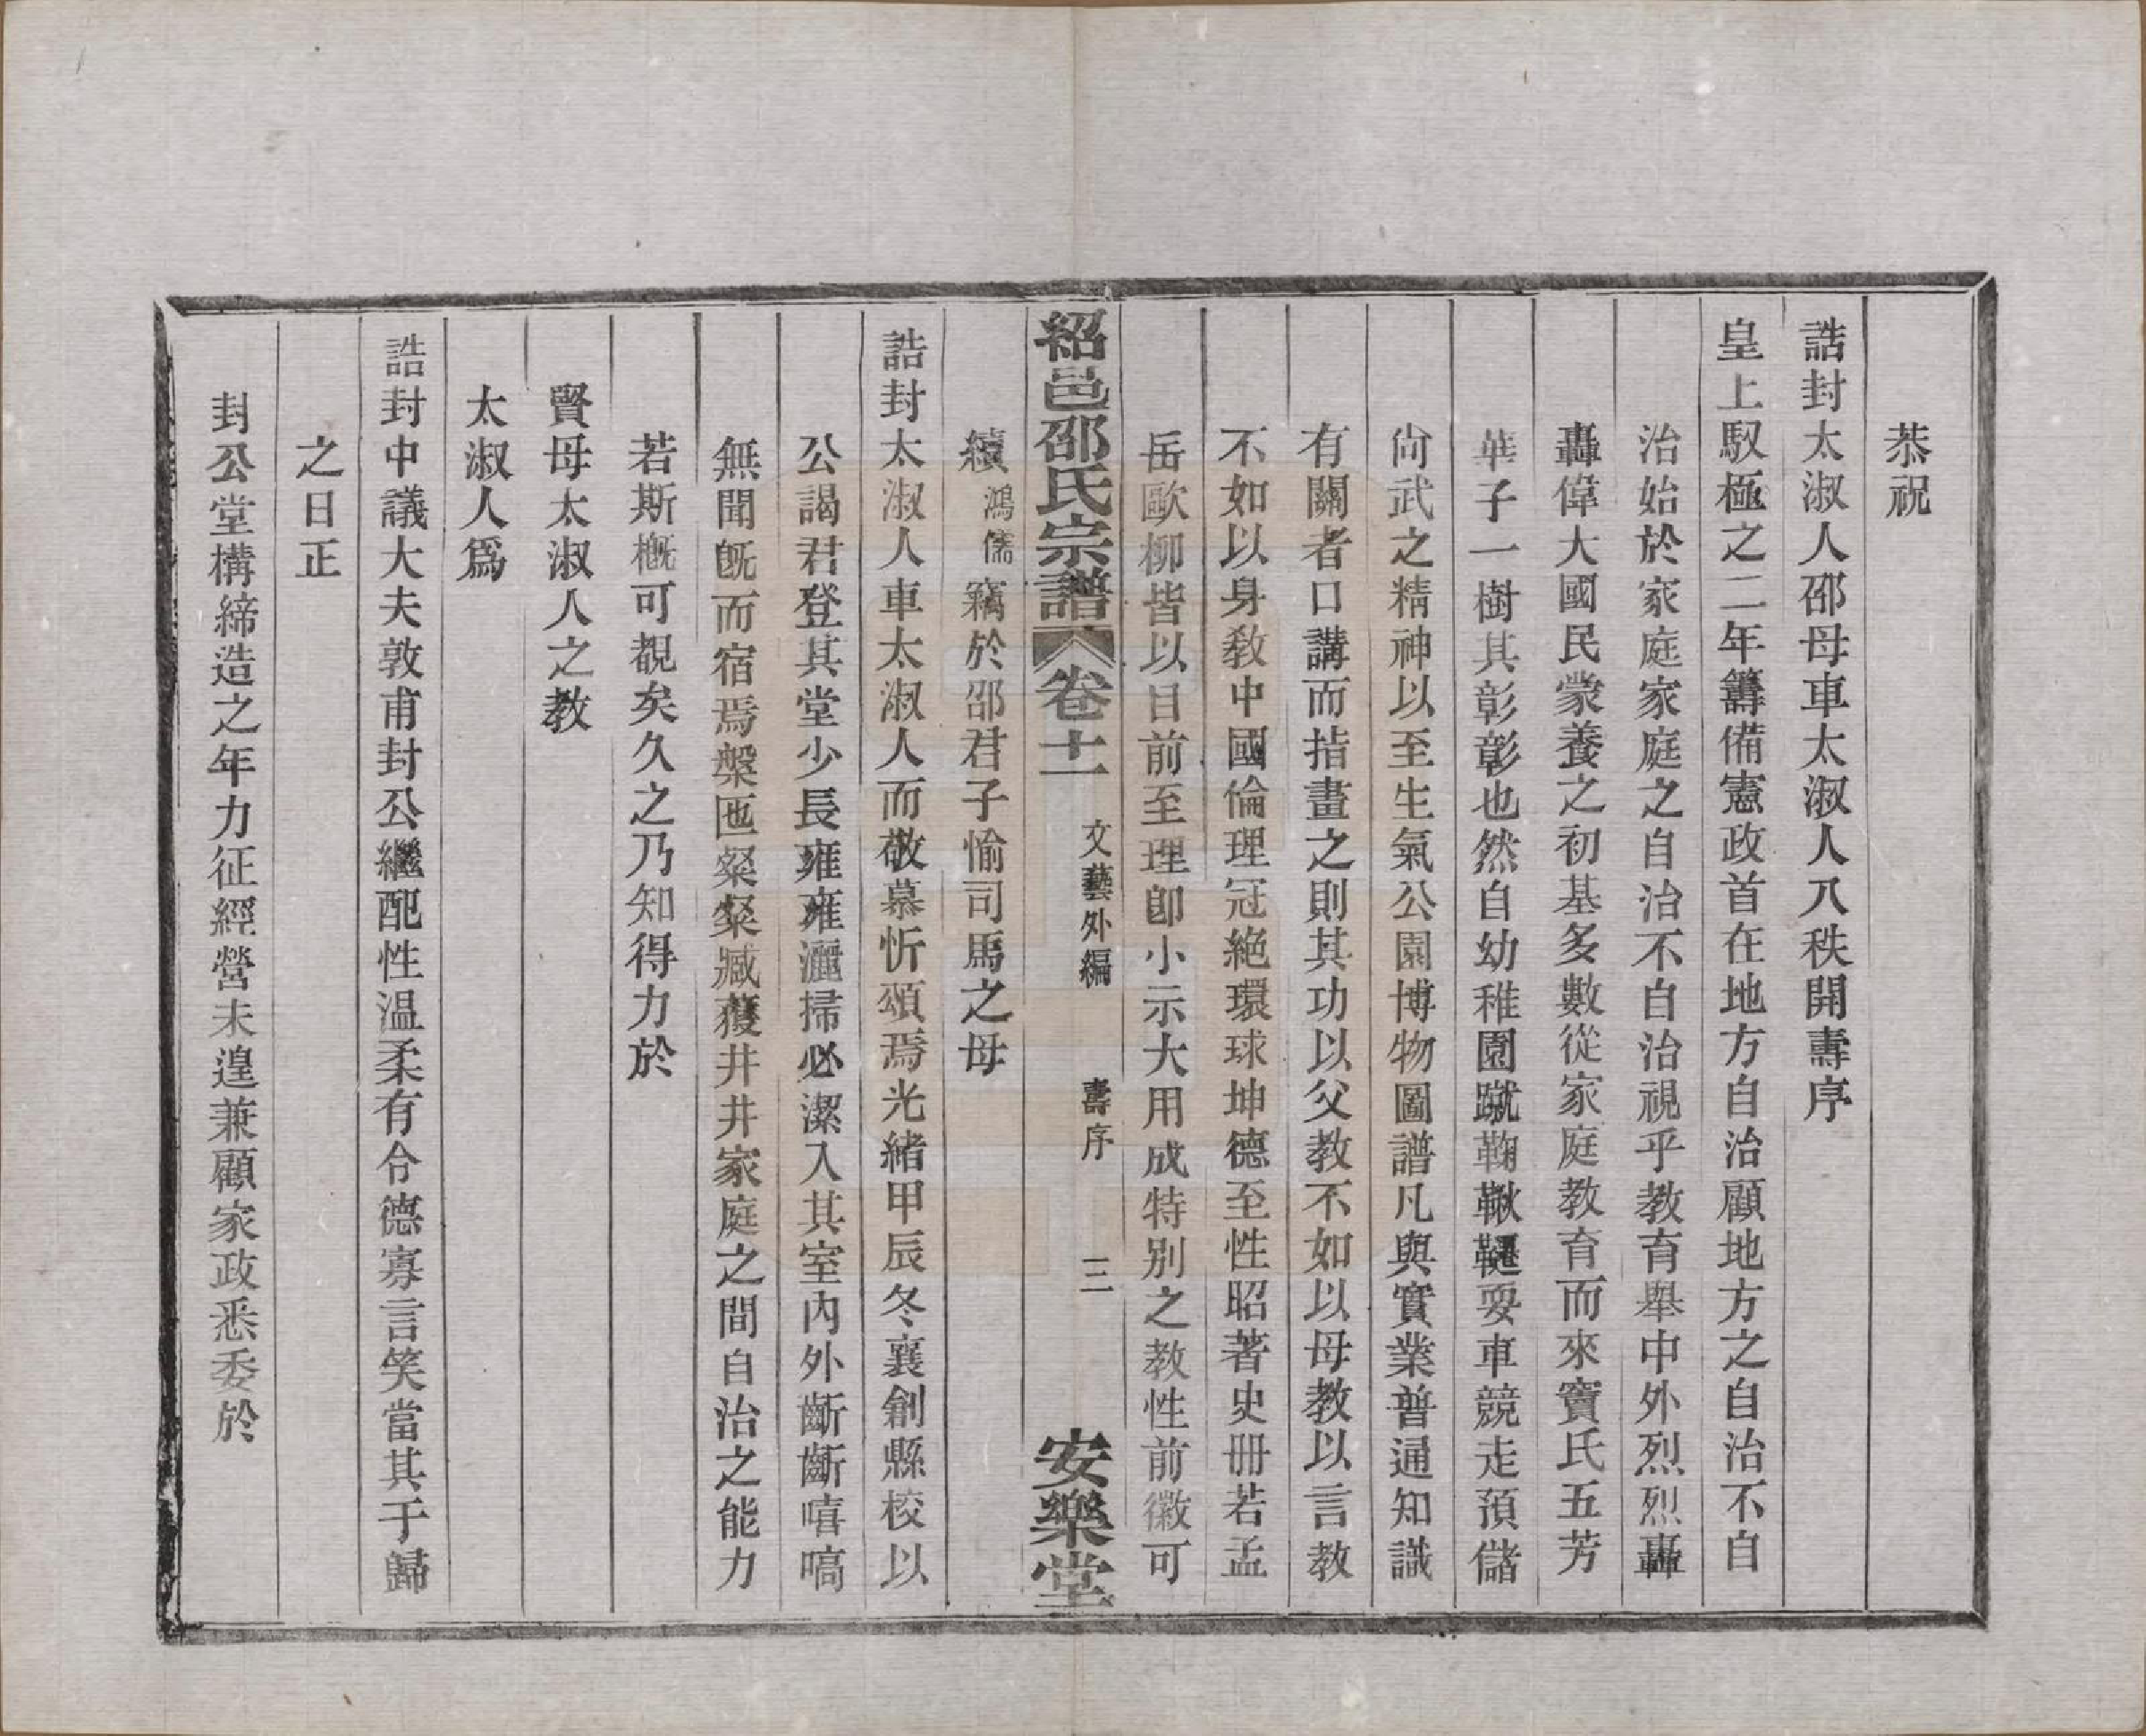 恭祝
誥封太淑人邵母車太淑人八秩開壽序
皇上馭極之二年籌備憲政首在地方自治顧地方之自治不自
治始於家庭家庭之自治不自治視乎教育舉中外烈烈轟
轟偉大國民蒙養之初基多數從家庭教育而來竇氏五芳
華子一樹其彰彰也然自幼稚園蹴鞠鞦韆耍車競走預儲
尚武之精神以至生氣公園博物圖譜凡與實業普通知識
有關者口講而指畫之則其功以父教不如以母教以言教
不如以身教中國倫理冠絕環球坤德至性昭著史册若孟
岳歐柳皆以目前至理卽小示大用成特別之教性前徽可
紹邑邵氏宗譜 卷十一 文藝外編 壽序 三 安樂堂
續鴻儒竊於邵君子愉司馬之母
誥封太淑人車太淑人而敬慕忻頌焉光緒甲辰冬襄創縣校以
公謁君登其堂少長雍雍灑掃必潔入其室內外齗齗嘻嗃
無聞旣而宿焉槃匜粲粲臧獲井井家庭之間自治之能力
若斯槪可覩矣久之乃知得力於
賢母太淑人之教
太淑人爲
誥封中議大夫敦甫封公繼配性溫柔有令德寡言笑當其于歸
之日正
封公堂構締造之年力征經營未遑兼顧家政悉委於